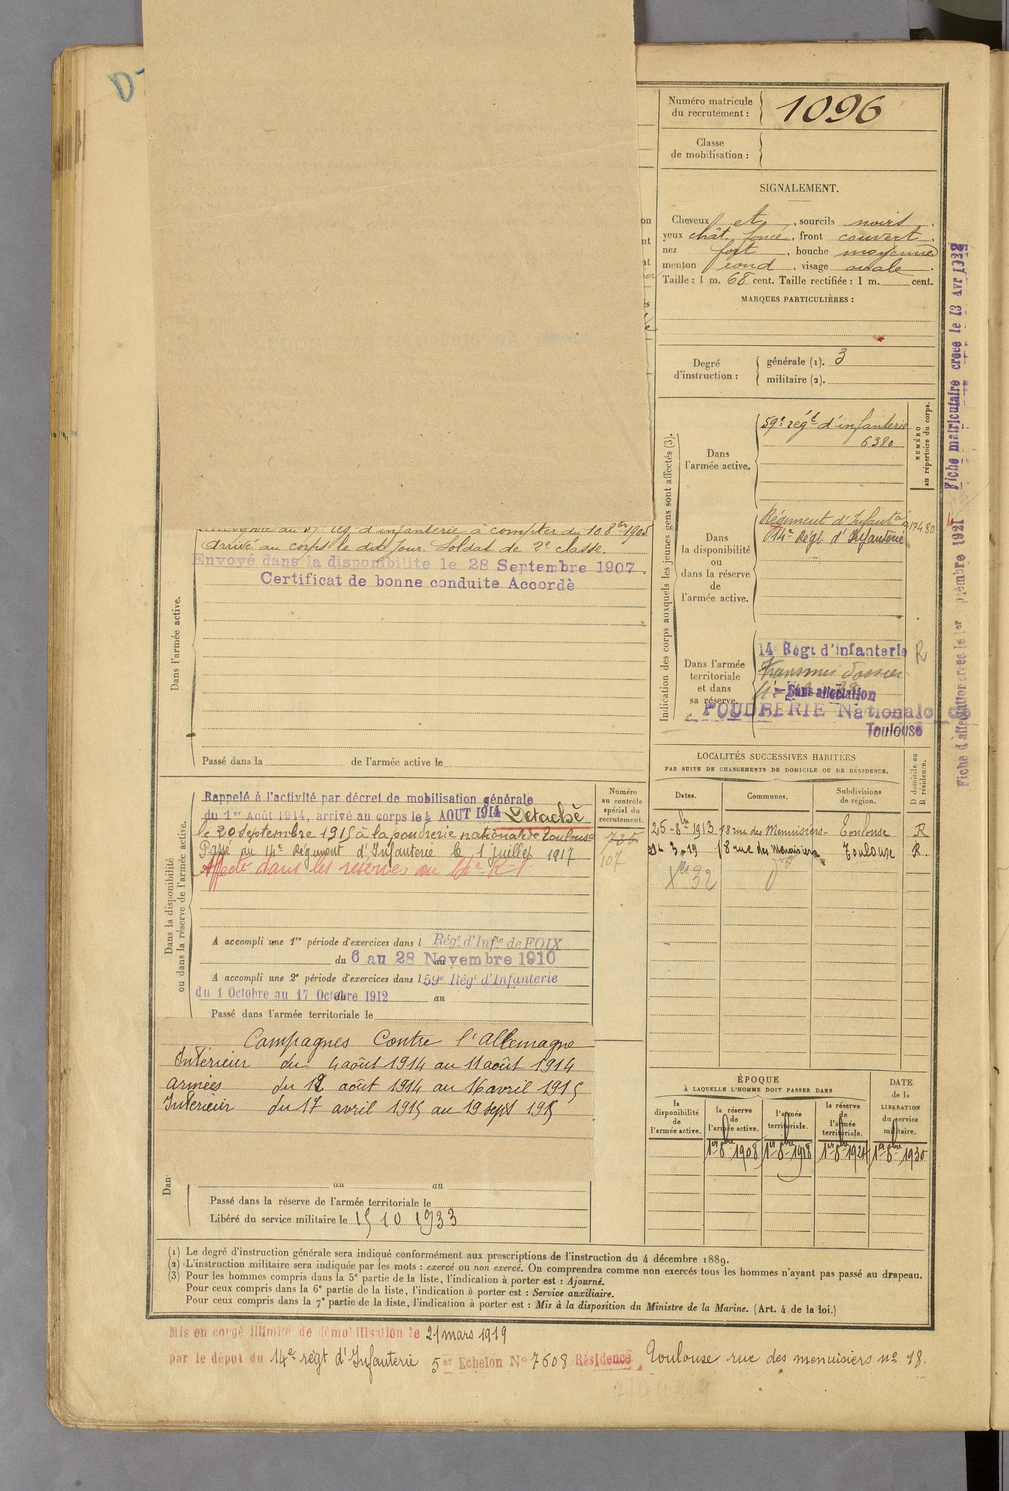 Numéro matricule
du recrutement :
1096
Classe
de mobilisation :
SIGNALEMENT.
Cheveux et , sourcils noirs .
yeux chât. foncé , front couvert ,
nez fort , bouche moyenne
menton rond , visage ovale .
Taille : 1 m. 68 cent. Taille rectifiée : 1 m. cent.
MARQUES PARTICULIÈRES :
Degré
d'instruction :
générale (1). 3
militaire (2).
Indication des corps auxquels les jeunes gens sont affectés (3).
NUMÉRO
au répertoire du corps.
Dans
l'armée active.
59e régt d'infanterie
6380
Dans
la disponibilité
ou
dans la réserve
de
l'armée active.
Régiment d'Infantie
14e Régt d'Infanterie
Dans l'armée
territoriale
et dans
sa réserve.
14 Régt d'infanterie R
Transmis dossier
Sans affectation
POUDRERIE Nationale
Toulouse
Fiche matriculaire créée le 13 Avr 1922
Dans l'armée active.
rég d'infanterie à compter du 10 8bre 1905
Arrivé au corps le dit jour. Soldat de 2e classe.
Envoyé dans la disponibilité le 28 Septembre 1907.
Certificat de bonne conduite Accordé
Passé dans la de l'armée active le
Dans la disponibilité
ou dans la réserve de l'armée active.
Numéro
au contrôle
spécial du
recrutement.
725
107
Rappelé à l'activité par décret de mobilisation générale
du 1er Août 1914, arrivé au corps le 4 AOUT 1914 Détaché
le 20 septembre 1915 à la poudrerie nationale de Toulouse
Passé au 14e Régiment d'Infanterie le 1 juillet 1917
Affecté dans les réserves au 14e R I
A accompli une 1re période d'exercices dans l Régt d'Infie de FOIX
du 6 au 28 Novembre 1910
A accompli une 2e période d'exercices dans l 59e Régt d'Infanterie
du 1 Octobre au 17 Octobre 1912 au
Passé dans l'armée territoriale le
Campagnes Contre l'Allemagne
Intérieur du 4 août 1914 au 11 août 1914
Armées du 12 août 1914 au 16 avril 1915
Intérieur du 17 avril 1915 au 19 sept 1915
Dan
au au
Passé dans la réserve de l'armée territoriale le
Libéré du service militaire le 15 10 1933
LOCALITÉS SUCCESSIVES HABITÉES
PAR SUITE DE CHANGEMENTS DE DOMICILE OU DE RÉSIDENCE.
D domicile ou
R résidence.
Dates. Communes. Subdivisions
de région.
25-8bre 1913 18 rue du Menuisiers Toulouse R
3-19 18 rue du Menuisiers Toulouse R
Xbre 32
ÉPOQUE
À LAQUELLE L'HOMME DOIT PASSER DANS
DATE
de la
LIBÉRATION
du service
militaire.
la
disponibilité
de
l'armée active.
la réserve
de
l'armée active.
l'armée
territoriale.
la réserve
de
l'armée
territoriale.
1er 8bre 1908 1er 8bre 1918 1er 8bre 1924 1er 8bre 1930
(1) Le degré d'instruction générale sera indiqué conformément aux prescriptions de l'instruction du 4 décembre 1889.
(2) L'instruction militaire sera indiquée par les mots : exercé ou non exercé. On comprendra comme non exercés tous les hommes n'ayant pas passé au drapeau.
(3) Pour les hommes compris dans la 5e partie de la liste, l'indication à porter est : Ajourné.
Pour ceux compris dans la 6e partie de la liste, l'indication à porter est : Service auxiliaire.
Pour ceux compris dans la 7e partie de la liste, l'indication à porter est : Mis à la disposition du Ministre de la Marine. (Art. 4 de la loi.)
Mis en congé illimité de démobilisation le 21 mars 1919
par le dépot du 14e régt d'Infanterie 5er Echelon No 7608 Résidence Toulouse rue des menuisiers no 18.